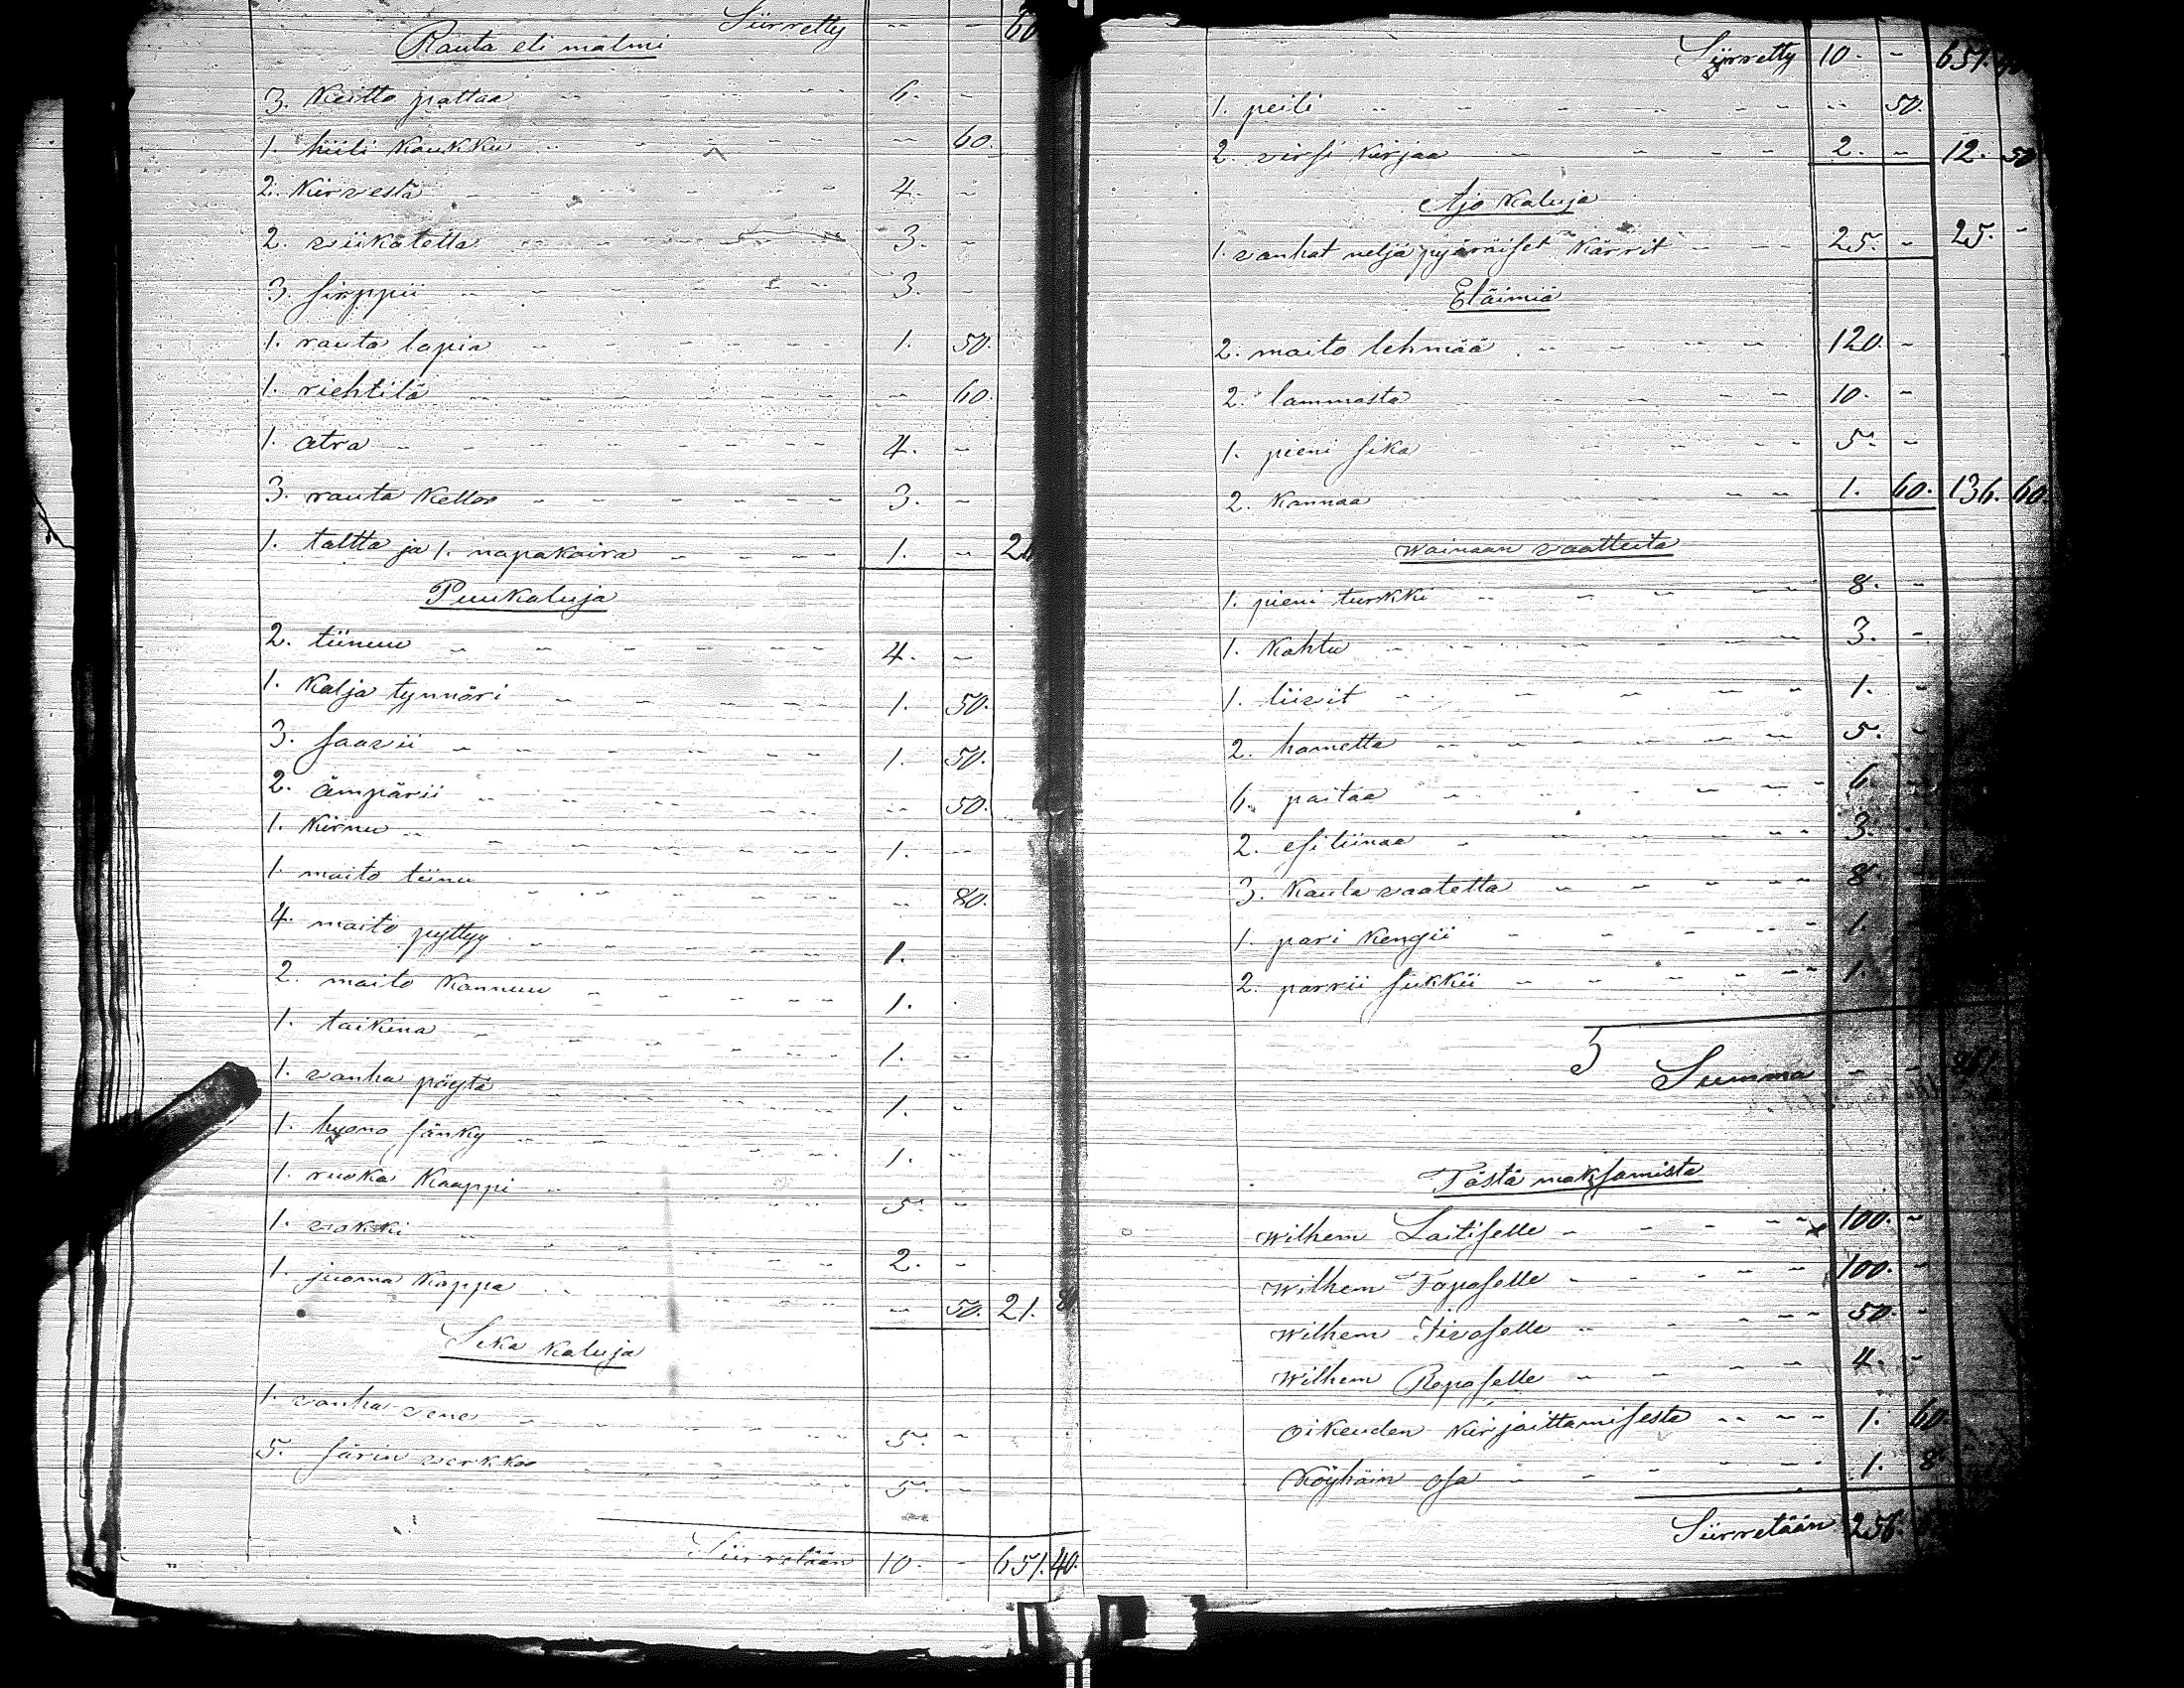 Siirretty - - 60
Rauta eli malmi
3. Keitto pattaa - - - 6. -
1. hiili Koukku - - - - 60.
2. Kirvestä - - - 4. -
2. viikatetta - - - 3. -
3. sirppii - - - 3. -
1. rauta lapia - - - 1. 50.
1. riehtilä - - - - 60.
1. atra - - - 4. -
3. rauta Kelloo - - - 3. -
1. taltta ja 1. napakaira - - - 1. -
Puukaluja
2. tiinuu - - - 4. -
1. Kalja tynnöri - - - 1. 50.
3. saavii - - - 1. 50.
2. ämpärii - - - - 50.
1. Kirnu - - - 1. -
1. maito tiinu - - - - 80.
4. maito pyttyy - - - 1. -
2. maito Kannuu - - - 1. -
1. taikina - - - 1. -
1. vanha pöytä - - - 1. -
1. huono sänky - - - 1. -
1. ruoka Kaappi - - - 5. -
1. vokki - - - 2. -
1. juoma Kappa - - - - 50. 21. 80.
Seka Kaluja
1. vanha vene - - - 5. -
5. särin verkkoo - - - 5. -
Siirretään 10. - 651. 40.
Siirretty 10. - 651. 40
1. peili - - - - 50.
2. virsi Kirjaa - - - 2. - 12. 50
Ajo Kaluja
1. vanhat neljä pyöräiset Kärrit - - - 25. - 25. -
Eläimiä
2. maito lehmää - - - 120. -
2. lammasta - - - 10. -
1. pieni sika - - - 5. -
2. Kannaa - - - 1. 60. 136. 60.
Wainaan vaatteita
1. pieni turkki - - - 8. -
1. Kahtu - - - 3. -
1. liivit - - - 1. -
2. hametta - - - 5. -
6. paitaa - - - 6. -
2. esiliinaa - - - 3. -
3. Kaula vaatetta - - - 8. -
1. pari Kengii - - - 1.
2. parrii sukkii - - - 1.
Summa - - 861.
Tästä maksamista
Wilhem Laitiselle - - - 100. -
Wilhem Taposelle - - - 100. -
Wilhem Tivoselle - - - 50. -
Wilhem Reposelle - - - 4. -
Oikeuden Kirjoittamisesta - - - 1. 60.
Köyhäin osa - - - 1. 8
Siirretään 256.